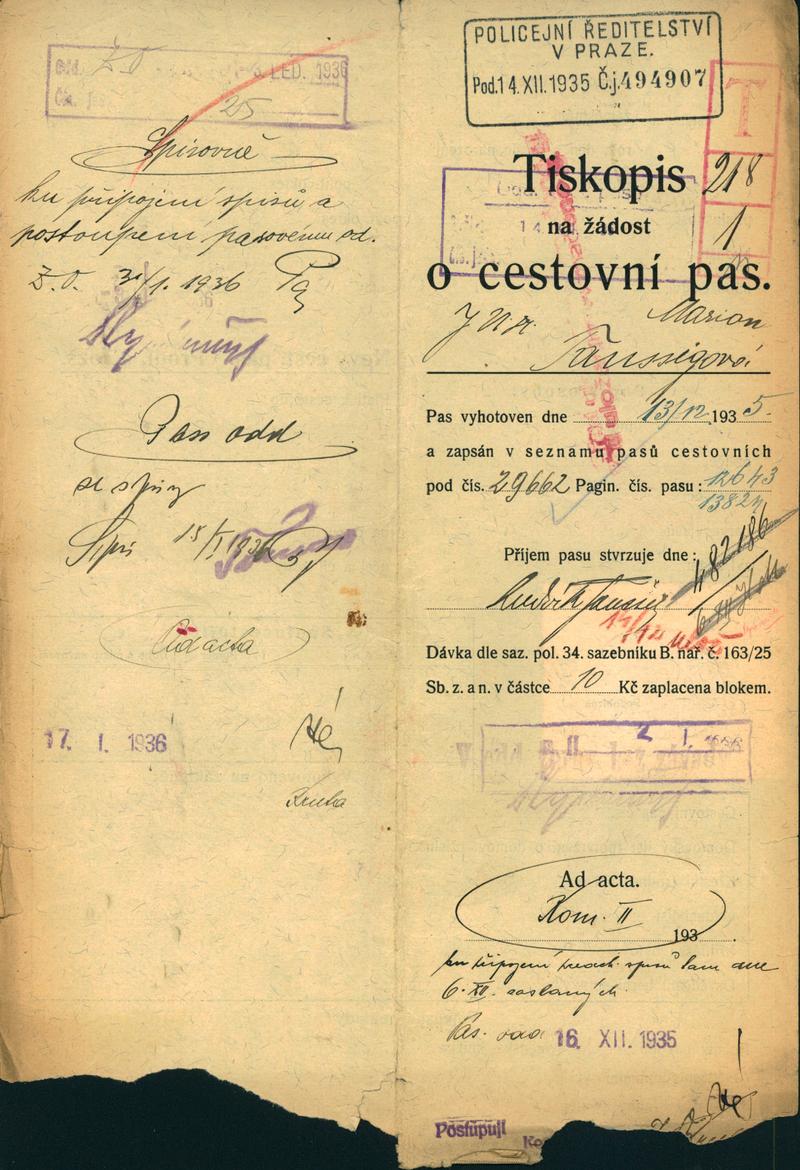 LED. 1936
25
Spisovně
ku připojení spisů a
postoupení pasovému od.
Ž. O. 3/1. 1936
Pass odd
se spisy
15/I 1936
Ad acta
17. I. 1936
POLICEJNÍ ŘEDITELSTVÍ
V PRAZE.
Pod. 14. XII. 1935 Č.j. 494907
T
218
1
Tiskopis
na žádost
o cestovní pas.
Marion
Taussigová
Pas vyhotoven dne 13/12 1935.
a zapsán v seznamu pasů cestovních
pod čís. 29662 Pagin. čís. pasu: 12643
13824
482186
Příjem pasu stvrzuje dne:
Dávka dle saz. pol. 34. sazebníku B. nař. č. 163/25
Sb. z. a n. v částce 10 Kč zaplacena blokem.
2 I. 1936
Ad acta.
Kom. II
193 .
ku připojení spisů tam dne
6. XII. zaslaných.
Pas. odd. 16. XII. 1935
Postupuji